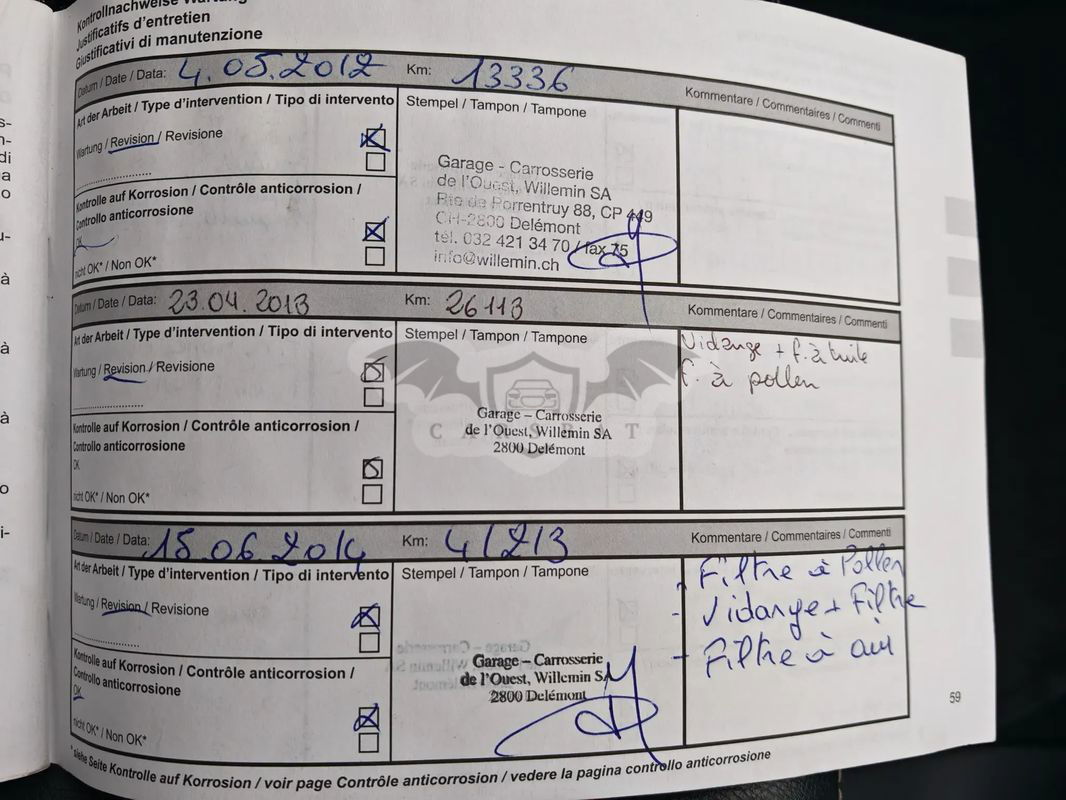 Kontrollnachweise Wartung
Justificatifs d'entretien
Giustificativi di manutenzione
Datum / Date / Data: 4.05.2012 Km: 13336 Kommentare / Commentaires / Commenti
Art der Arbeit / Type d'intervention / Tipo di intervento
Stempel / Tampon / Tampone
Wartung / Revision / Revisione
Kontrolle auf Korrosion / Contrôle anticorrosion /
Controllo anticorrosione
OK
nicht OK* / Non OK*
Garage - Carrosserie
de l'Ouest, Willemin SA
Rte de Porrentruy 88, CP 449
CH-2800 Delémont
tél. 032 421 34 70 / fax 75
info@willemin.ch
Datum / Date / Data: 23.04.2013 Km: 26113 Kommentare / Commentaires / Commenti
Art der Arbeit / Type d'intervention / Tipo di intervento
Stempel / Tampon / Tampone
Wartung / Revision / Revisione
Kontrolle auf Korrosion / Contrôle anticorrosion /
Controllo anticorrosione
OK
nicht OK* / Non OK*
Garage – Carrosserie
de l'Ouest, Willemin SA
2800 Delémont
Vidange + f. à huile
f. à pollen
Datum / Date / Data: 15.06.2014 Km: 41213 Kommentare / Commentaires / Commenti
Art der Arbeit / Type d'intervention / Tipo di intervento
Stempel / Tampon / Tampone
Wartung / Revision / Revisione
Kontrolle auf Korrosion / Contrôle anticorrosion /
Controllo anticorrosione
OK
nicht OK* / Non OK*
Garage – Carrosserie
de l'Ouest, Willemin SA
2800 Delémont
- Filtre à Pollen
- Vidange + Filtre
- Filtre à air
59
* siehe Seite Kontrolle auf Korrosion / voir page Contrôle anticorrosion / vedere la pagina controllo anticorrosione